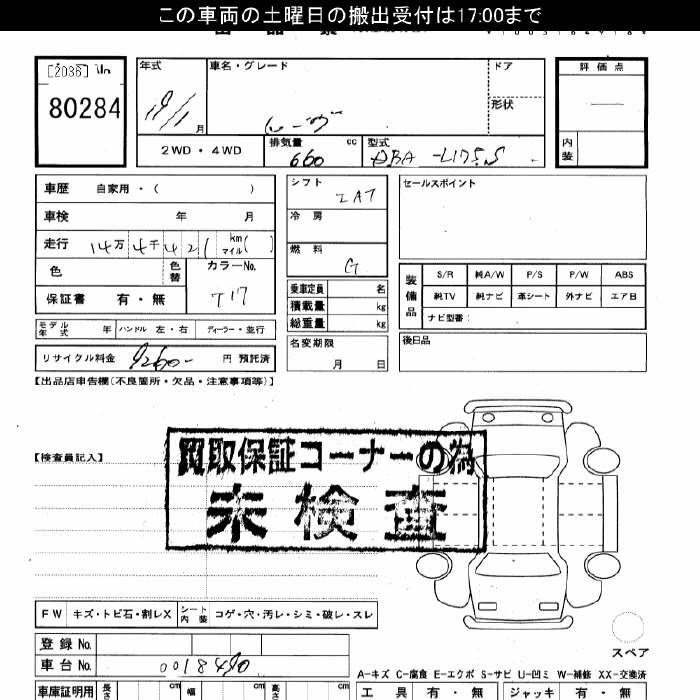 この車両の土曜日の搬出受付は17:00まで
[2036]
80284
年式
月
車名・グレード
ムーヴ
ドア
形状
評価点
内装
2WD・4WD
排気量 660 cc
型式 DBA-L175S
車歴 自家用・( )
車検 年 月
走行 14万4千421 km マイル( )
色
色替
カラーNo.
T17
保証書 有・無
モデル年式 年 ハンドル 左・右 ディーラー・並行
リサイクル料金 9260- 円 預託済
シフト
IAT
冷房
燃料
G
乗車定員 名
積載量 kg
総重量 kg
名変期限
月 日
セールスポイント
装備品
S/R 純A/W P/S P/W ABS
純TV 純ナビ 革シート 外ナビ エアB
ナビ型番:
後日品
【出品店申告欄(不良箇所・欠品・注意事項等)】
【検査員記入】
買取保証コーナーの為
未検査
FW キズ・トビ石・割レX シート内装 コゲ・穴・汚レ・シミ・破レ・スレ
登録No.
車台No. 0018490
車庫証明用 長さ cm 幅 cm 高さ cm
スペア
A-キズ C-腐食 E-エクボ S-サビ U-凹ミ W-補修 XX-交換済
工具 有・無 ジャッキ 有・無